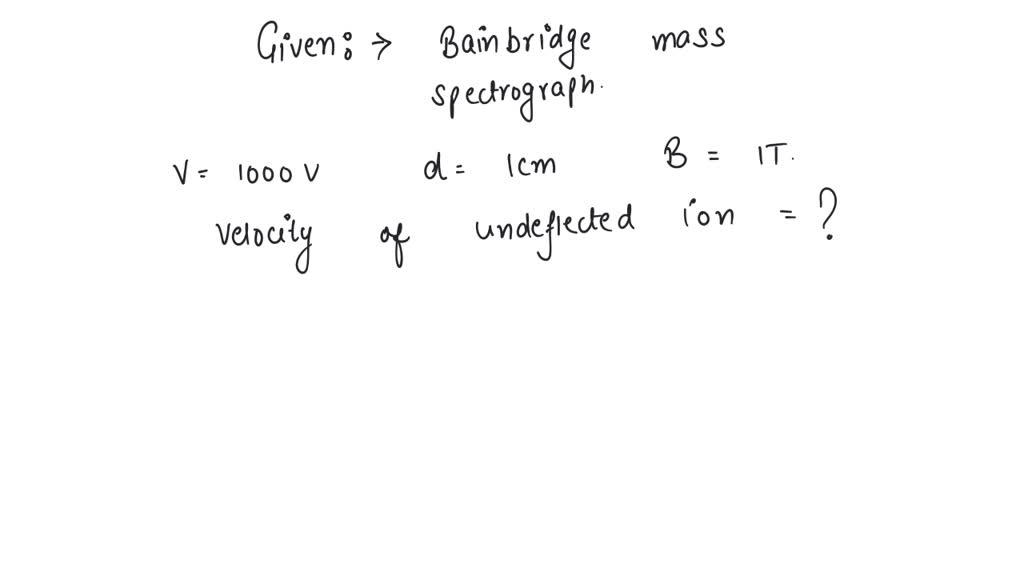 Given: → Bainbridge mass
spectrograph.
V = 1000 V d = 1cm B = 1T.
Velocity of undeflected ion = ?